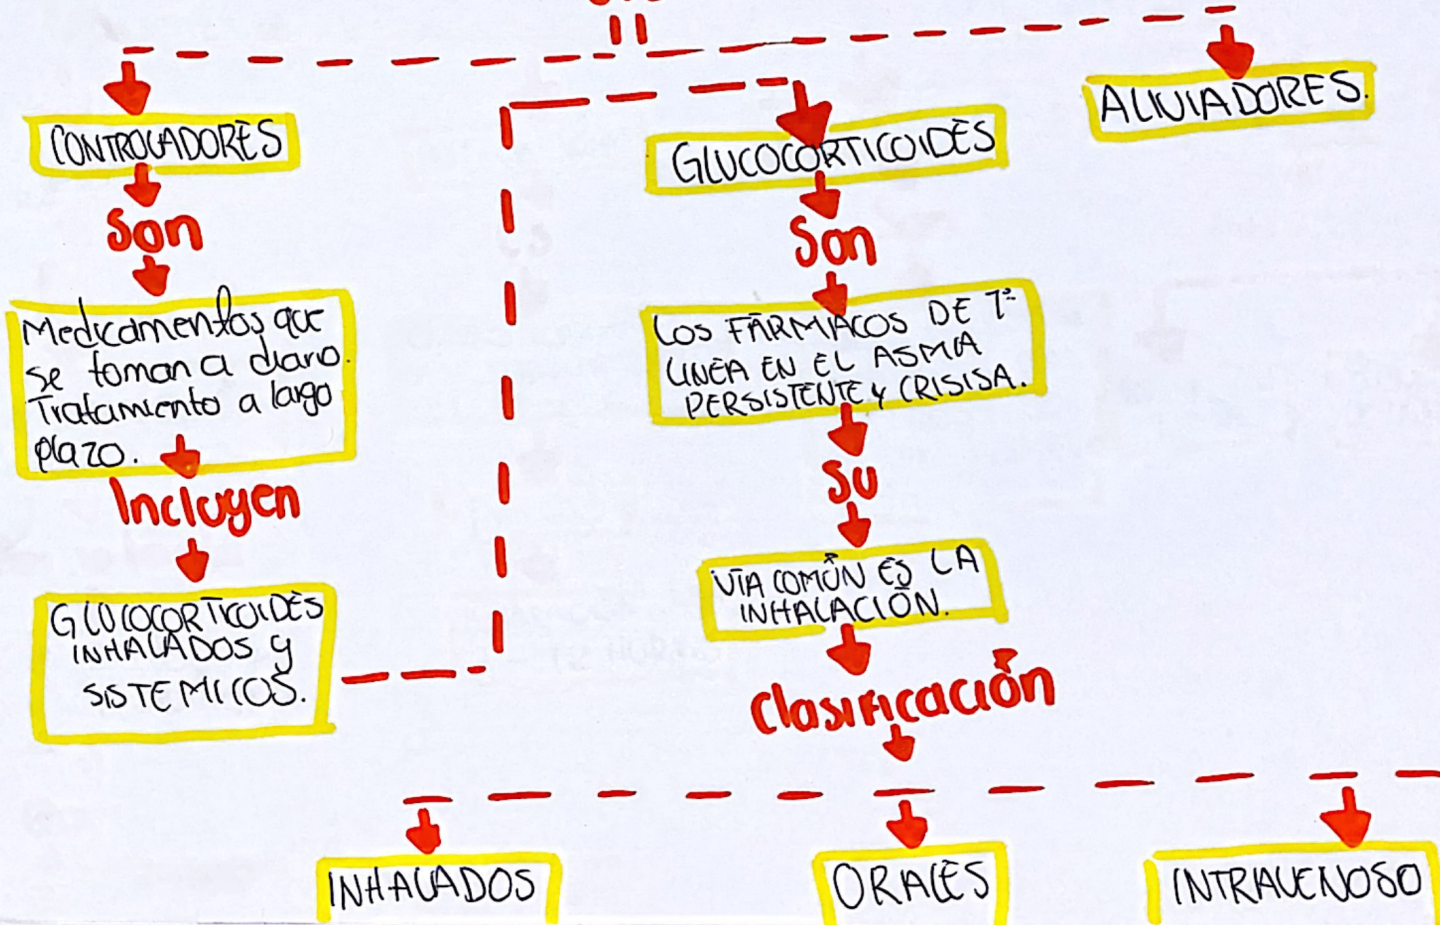 CONTROLADORES
Son
Medicamentos que
se toman a diario.
Tratamiento a largo
plazo.
Incluyen
GLUCOCORTICOIDES
INHALADOS y
SISTEMICOS.
GLUCOCORTICOIDES
Son
LOS FÁRMACOS DE 1ª
LINEA EN EL ASMA
PERSISTENTE Y CRISISA.
SU
VÍA COMÚN ES LA
INHALACIÓN.
Clasificación
INHALADOS
ORALES
INTRAVENOSO
ALIVIADORES.